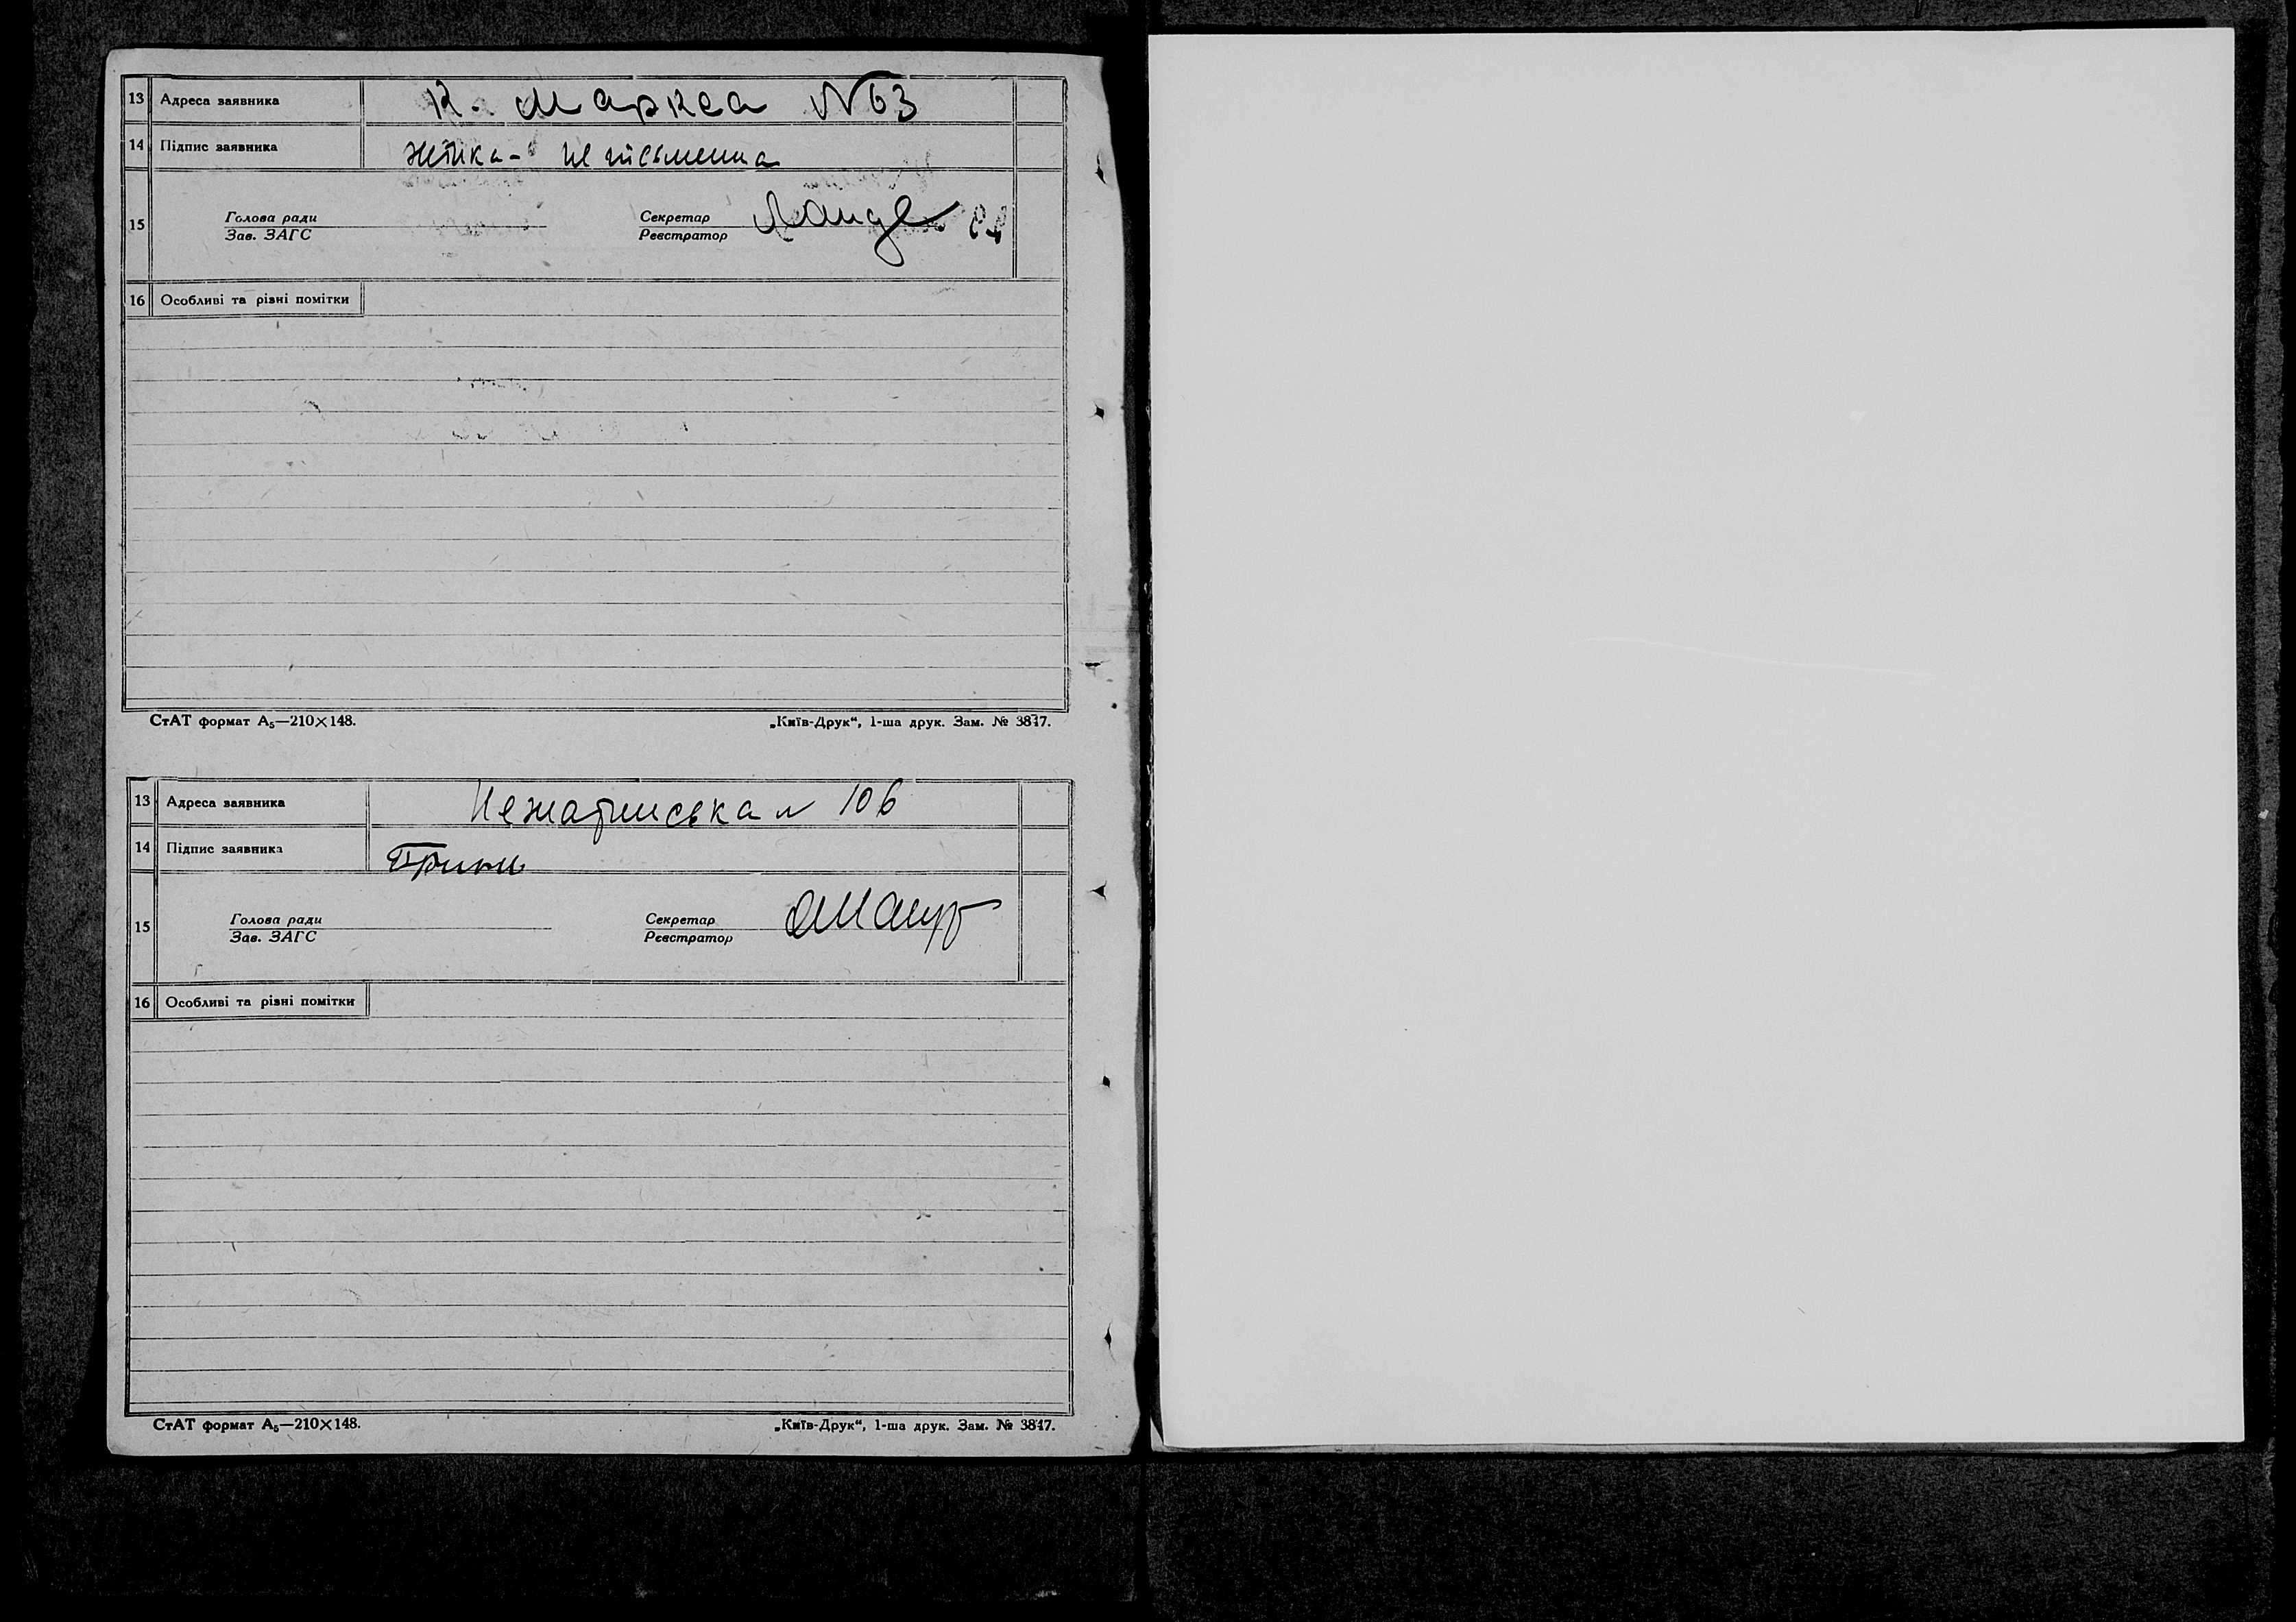 13 Адреса заявника К. Маркса №63
14 Підпис заявника неписьменна
15 Голова ради Секретар
Зав. ЗАГС Реєстратор
16 Особливі та різні помітки
СтАТ формат А5—210×148. „Київ-Друк“, 1-ша друк. Зам. № 3847.
13 Адреса заявника 106
14 Підпис заявника
15 Голова ради Секретар
Зав. ЗАГС Реєстратор
16 Особливі та різні помітки
СтАТ формат А5—210×148. „Київ-Друк“, 1-ша друк. Зам. № 3847.